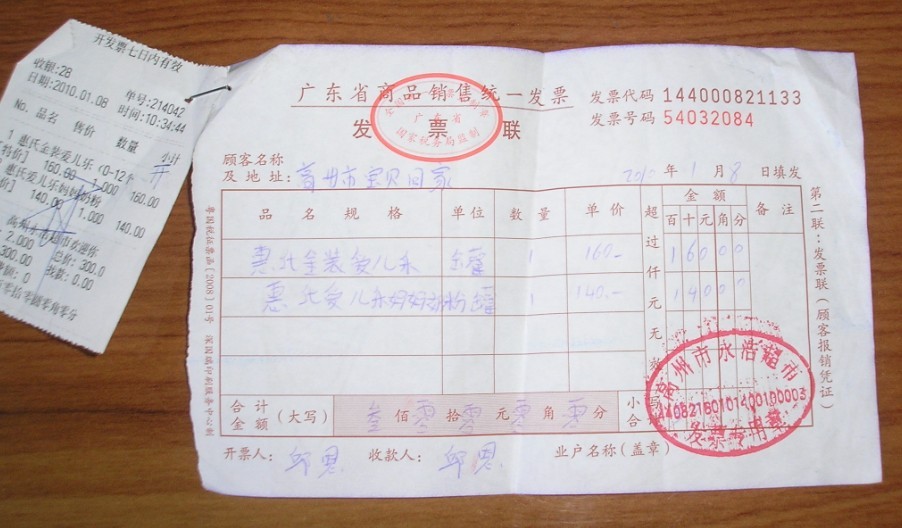 开发票七日内有效
收银:28 单号:214042
日期:2010.01.08 时间:10:34:44
No. 品名 售价 数量 小计
1 惠氏金装爱儿乐 (0-12个
160.00 1.000 160.00
惠氏爱儿乐妈妈奶粉
140.00 1.000 140.00
高州永浩超市欢迎你
2.000 总价:300.0
300.00 找数:0.00
广东省商品销售统一发票
发票联
全国统一发票监制章
广东省
国家税务局监制
发票代码 144000821133
发票号码 54032084
顾客名称
及地址: 高州市宝贝回家 2010年1月8日填发
品名规格 单位 数量 单价 超过仟元无效 金额 备注
百十元角分
惠氏金装爱儿乐 罐 1 160.- 16000
惠氏爱儿乐妈妈奶粉 罐 1 140.- 14000
合计
金额 (大写) 叁佰零拾零元零角零分 小写
合计
开票人: 邱恩 收款人: 邱恩 业户名称(盖章)
第二联:发票联(顾客报销凭证)
高州市永浩超市
发票专用章